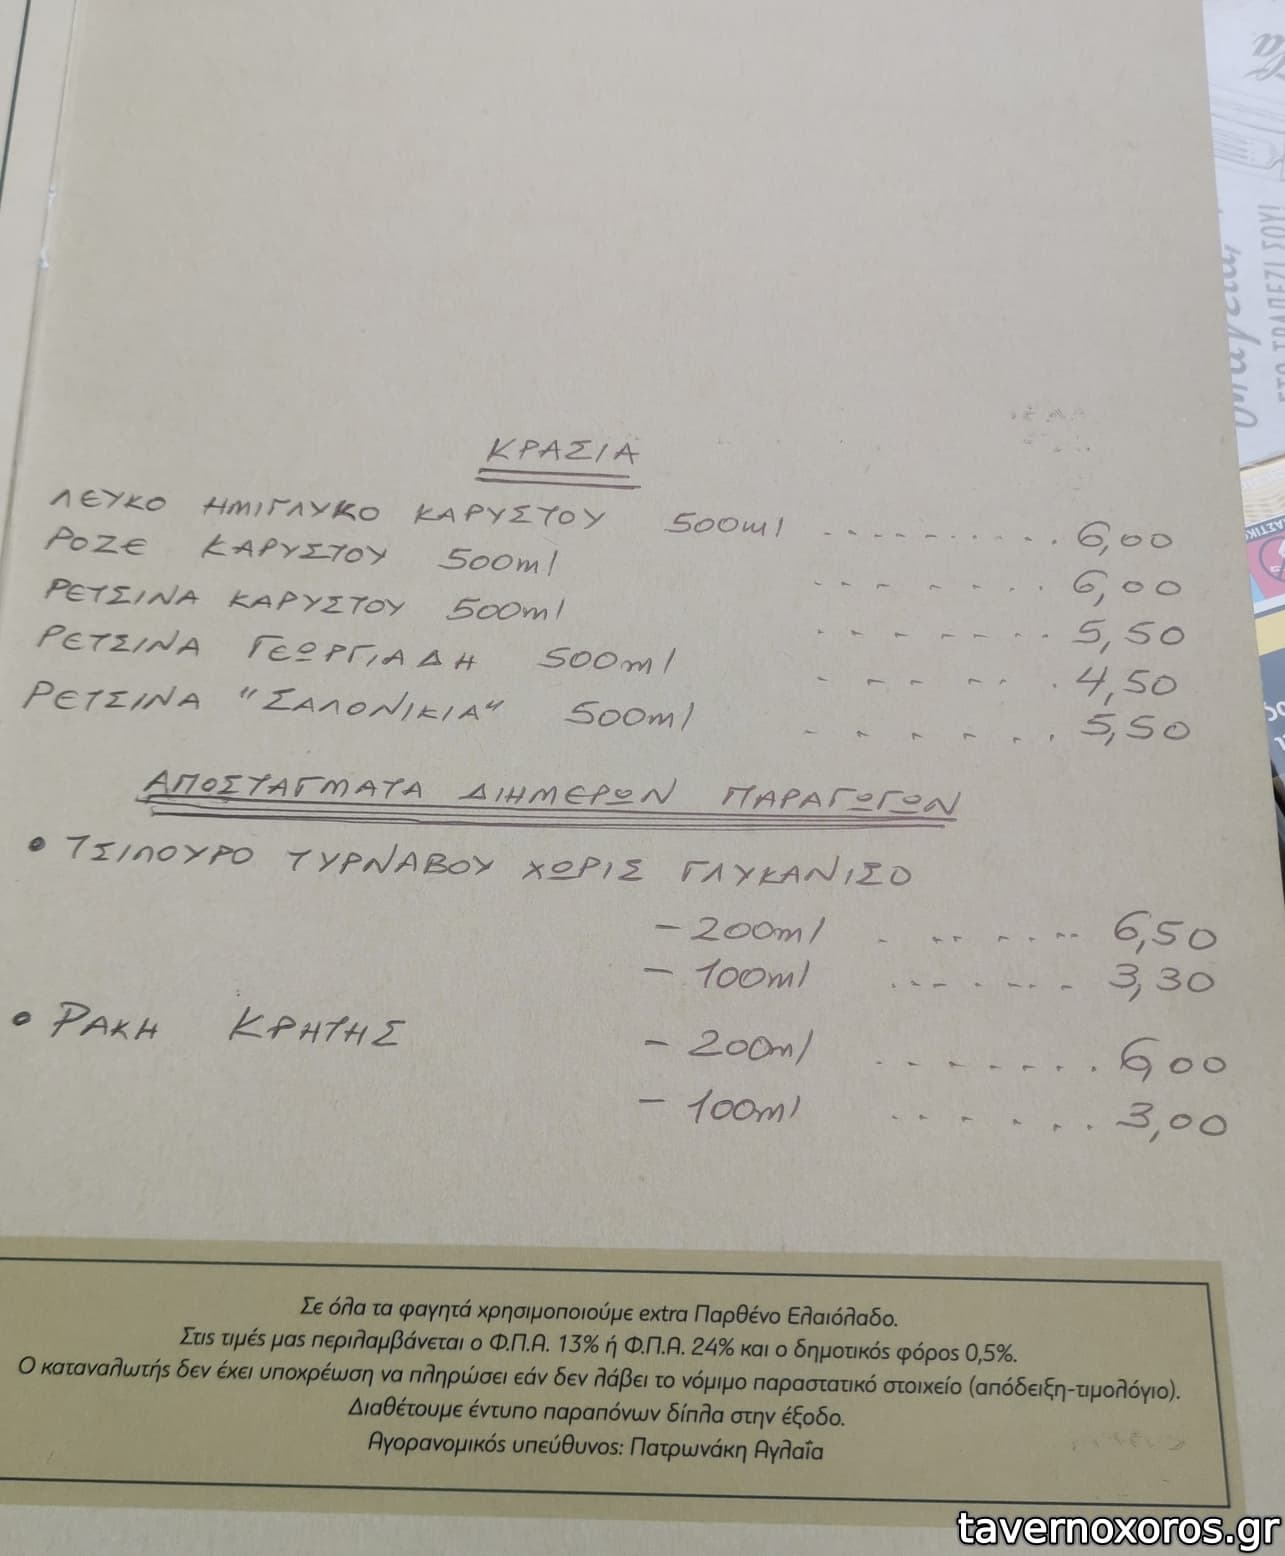 ΚΡΑΣΙΑ
ΛΕΥΚΟ ΗΜΙΓΛΥΚΟ ΚΑΡΥΣΤΟΥ 500ml .......... 6,00
ΡΟΖΕ ΚΑΡΥΣΤΟΥ 500ml ....... 6,00
ΡΕΤΣΙΝΑ ΚΑΡΥΣΤΟΥ 500ml ....... 5,50
ΡΕΤΣΙΝΑ ΓΕΩΡΓΙΑΔΗ 500ml ...... 4,50
ΡΕΤΣΙΝΑ "ΣΑΛΟΝΙΚΙΑ" 500ml ....... 5,50
ΑΠΟΣΤΑΓΜΑΤΑ ΔΙΗΜΕΡΩΝ ΠΑΡΑΓΩΓΩΝ
• ΤΣΙΠΟΥΡΟ ΤΥΡΝΑΒΟΥ ΧΩΡΙΣ ΓΛΥΚΑΝΙΣΟ
- 200ml ........ 6,50
- 100ml ........ 3,30
• ΡΑΚΗ ΚΡΗΤΗΣ - 200ml ....... 6,00
- 100ml ....... 3,00
Σε όλα τα φαγητά χρησιμοποιούμε extra Παρθένο Ελαιόλαδο.
Στις τιμές μας περιλαμβάνεται ο Φ.Π.Α. 13% ή Φ.Π.Α. 24% και ο δημοτικός φόρος 0,5%.
Ο καταναλωτής δεν έχει υποχρέωση να πληρώσει εάν δεν λάβει το νόμιμο παραστατικό στοιχείο (απόδειξη-τιμολόγιο).
Διαθέτουμε έντυπο παραπόνων δίπλα στην έξοδο.
Αγορανομικός υπεύθυνος: Πατρωνάκη Αγλαΐα
tavernoxoros.gr